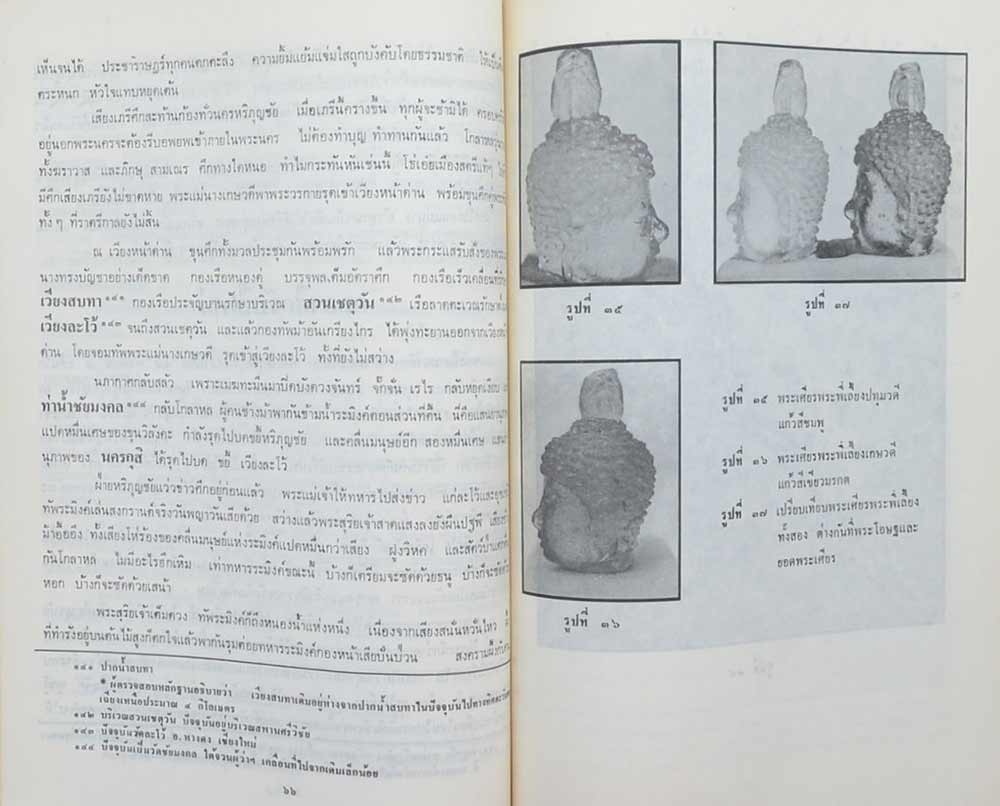 เห็นจนได้ ประชาราษฎร์ทุกคนตกตะลึง ความยิ้มแย้มแจ่มใสถูกบังคับโดยธรรมชาติ
ตระหนก หัวใจแทบหยุดเต้น
เสียงเภรีศึกสะท้านก้องทั่วนครหริภุญชัย เมื่อเภรีนี้ครางขึ้น ทุกผู้จะช้ามิได้
อยู่นอกพระนครจะต้องรีบอพยพเข้าภายในพระนคร ไม่ต้องทำบุญ ทำทานกันแล้ว
ทั้งฆราวาส และภิกษุ สามเณร ศึกทางใดหนอ ทำไมกระทันหันเช่นนี้ โซ่เอ๋ยเมืองสตรีแท้ๆ
มีศึกเสียงเภรียังไม่ขาดหาย พระแม่นางเกษวดีพาพระวรกายรุดเข้าเวียงหน้าด่าน พร้อมขุนศึก
ทั้ง ๆ ที่ราตรีกาลยังไม่สิ้น
ณ เวียงหน้าด่าน ขุนศึกทั้งมวลประชุมกันพร้อมพรัก แล้วพระกระแสรับสั่งของพระ
นางทรงบัญชาอย่างเด็ดขาด กองเรือหนองคู่ บรรจุพลเต็มอัตราศึก กองเรือเร็วเคลื่อนที่
เวียงสบทา ๑๔๑ กองเรือประจัญบานรักษาบริเวณ สวนเชตุวัน ๑๔๒ เรือลาดตะเวณรักษา
เวียงละโว้ ๑๔๓ จนถึงสวนเชตุวัน และแล้วกองทัพม้าอันเกรียงไกร ได้พุ่งทะยานออกจากเวียง
ด่าน โดยจอมทัพพระแม่นางเกษวดี รุดเข้าสู่เวียงละโว้ ทั้งที่ยังไม่สว่าง
นภากาศกลับสลัว เพราะเมฆทะมึนมาปิดบังดวงจันทร์ จั๊กจั่น เรไร กลับหยุดเงียบ
ท่าน้ำชัยมงคล ๑๔๔ กลับโกลาหล ผู้คนช้างม้าพากันข้ามน้ำระมิงค์ตอนส่วนที่ตื้น
แปดหมื่นเศษของขุนวิลังคะ กำลังรุดไปบดขยี้หริภุญชัย และคลื่นมนุษย์อีก สองหมื่นเศษ
นุภาพของ นครกุสิ ได้รุดไปบด ขยี้ เวียงละโว้
ฝ่ายหริภุญชัยแว่วข่าวศึกอยู่ก่อนแล้ว พระแม่เจ้าให้ทหารไปส่งข่าว แก่ละโว้
ทัพระมิงค์เล่นสงกรานต์จริงวันพญาวันเสียด้วย สว่างแล้วพระสุริยเจ้าสาดแสงลงยังผืนปฐพี
ม้าอื้ออึง ทั้งเสียงโห่ร้องของคลื่นมนุษย์แห่งระมิงค์แปดหมื่นกว่าเสียง ฝูงวิหค
กันโกลาหล ไม่มีอะไรอีกเหิม เท่าทหารระมิงค์ขณะนี้ บ้างก็เตรียมจะซัดด้วยธนู บ้างก็จะซัด
หอก บ้างก็จะซัดด้วยเสน้า
พระสุริยเจ้าเต็มดวง ทัพระมิงค์ก็ถึงหนองน้ำแห่งหนึ่ง เนื่องจากเสียงสนั่นหวั่นไหว
ที่ทำรังอยู่บนต้นไม้สูงก็ตกใจแล้วพากันรุมต่อยทหารระมิงค์กองหน้าเสียปั่นป่วน
๑๔๑ ปากน้ำสบทา
* ผู้ตรวจสอบหลักฐานอธิบายว่า เวียงสบทาเดิมอยู่ห่างจากปากน้ำสบทาในปัจจุบันไปทางทิศ
เฉียงเหนือประมาณ ๔ กิโลเมตร
๑๔๒ บริเวณสวนเชตุวัน ปัจจุบันอยู่บริเวณสพานศรีวิชัย
๑๔๓ ปัจจุบันวัดละโว้ อ.หางดง เชียงใหม่
๑๔๔ ปัจจุบันเป็นวัดชัยมงคล ใต้จวนผู้ว่าฯ เคลื่อนที่ไปจากเดิมเล็กน้อย
๖๖
รูปที่ ๓๕
รูปที่ ๓๗
รูปที่ ๓๖
รูปที่ ๓๕ พระเศียรพระพี่เลี้ยงปทุมวดี
แก้วสีชมพู
รูปที่ ๓๖ พระเศียรพระพี่เลี้ยงเกษวดี
แก้วสีเขียวมรกต
รูปที่ ๓๗ เปรียบเทียบพระเศียรพระพี่เลี้ยง
ทั้งสอง ต่างกันที่พระโอษฐและ
ยอดพระเศียร